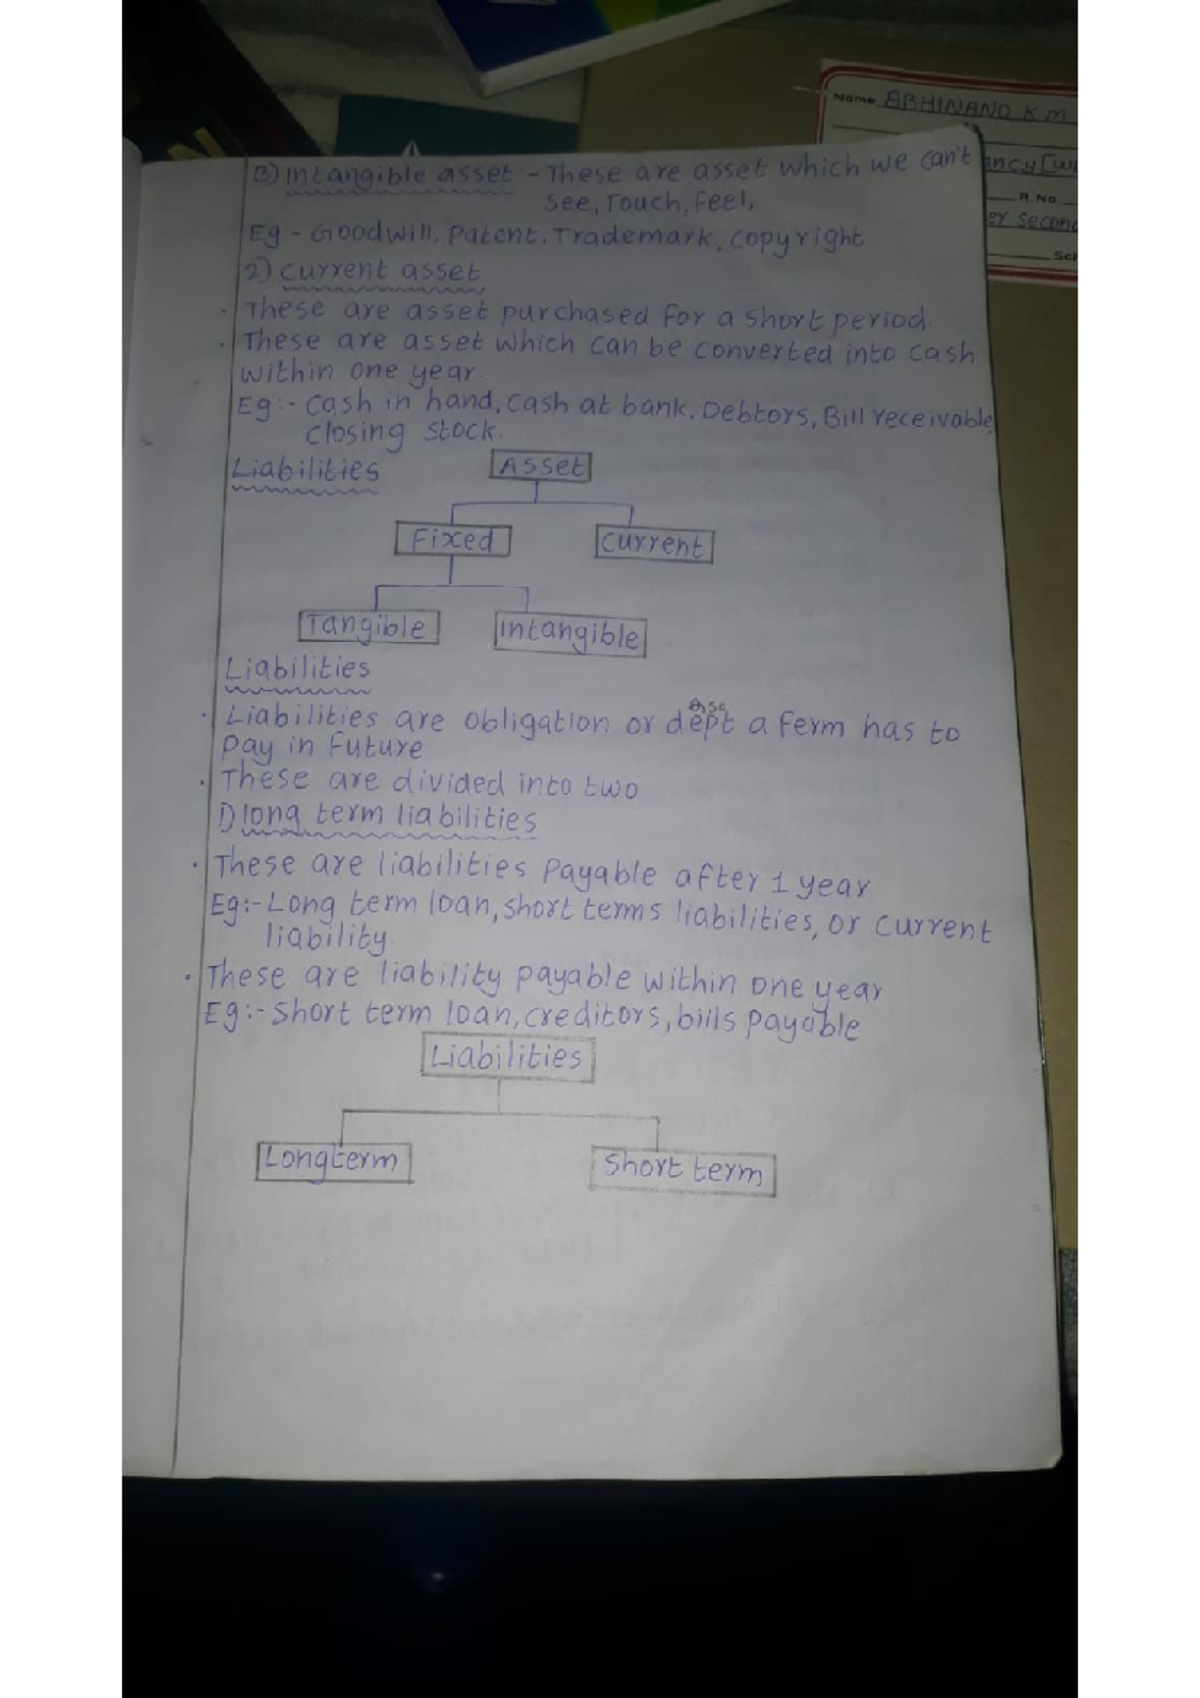 Name ABHINAND K M
ancy [w
R.No
er second
Sch
B) Intangible asset :- These are asset which we can't
see, Touch, Feel,
Eg - Goodwill, Patent, Trademark, copyright
2) Current asset
· These are asset purchased for a short period.
· These are asset which can be converted into cash
within one year.
Eg:- Cash in hand, Cash at bank, Debtors, Bill receivable,
closing stock.
Liabilities
Asset
Fixed Current
Tangible Intangible
Liabilities
· Liabilities are obligation or dept a ferm has to
pay in Future
· These are divided into two
1) long term liabilities
· These are liabilities payable after 1 year
Eg:- Long term loan, short terms liabilities, or current
liability.
· These are liability payable within one year
Eg:- Short term loan, creditors, bills payable
Liabilities
Longterm Short term